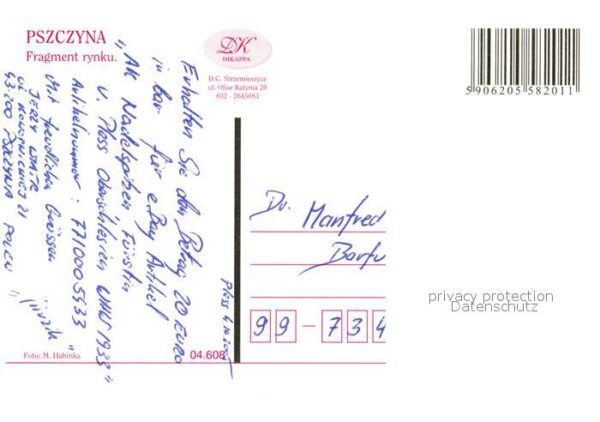 PSZCZYNA
Fragment rynku.
DK
DIKAPPA
D.G. Strzemieszyce
ul. Ofiar Katynia 20
032 - 2645083
5906205582011
Erhalten Sie den Betrag 20 EURO
in bar für e-Bay Artikel
"AK Nadelspitzen Fürstin
v. Pless Oberschlesien WHW 1933"
Artikelnummer: 7710005933
Mit freundlichen Grüssen
JERZY
21
43-200 PSZCZYNA POLEN
Pless
Dr. Manfred
99-734
privacy protection
Datenschutz
Foto: M. Habinka
04.608